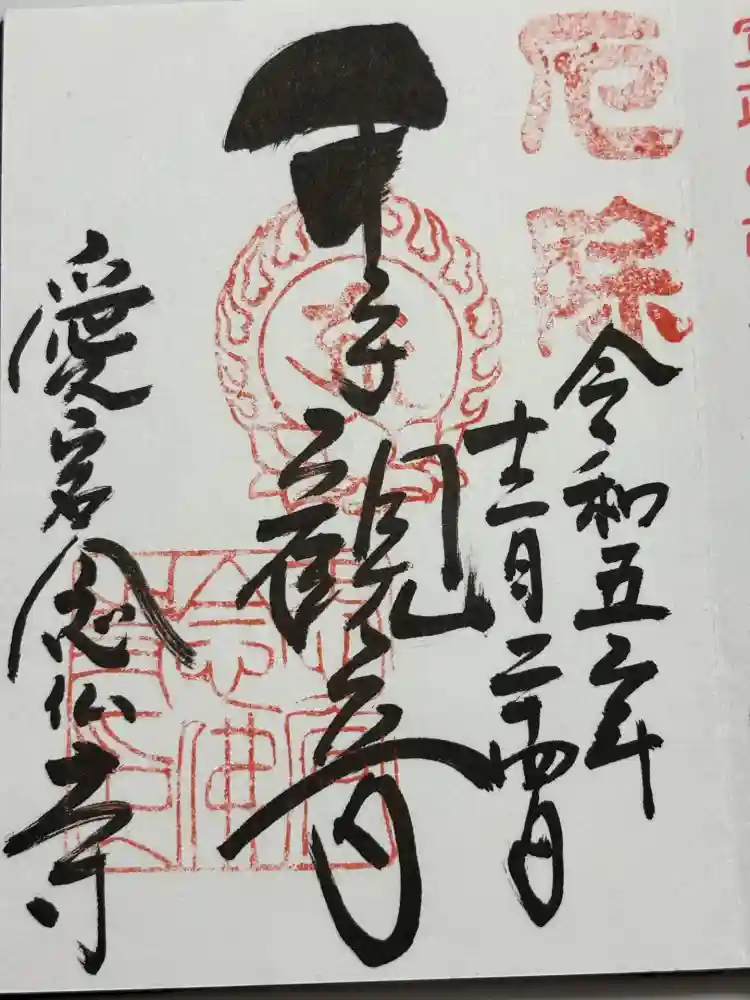 厄除
令和五年
十二月二十四日
千手観音
愛宕念仏寺